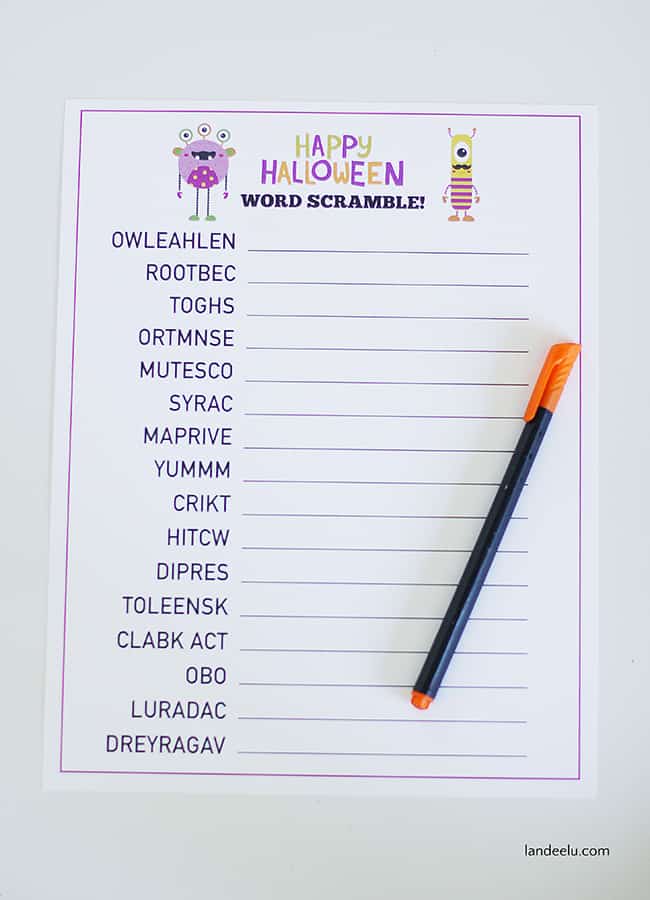 HAPPY
HALLOWEEN
WORD SCRAMBLE!
OWLEAHLEN
ROOTBEC
TOGHS
ORTMNSE
MUTESCO
SYRAC
MAPRIVE
YUMMM
CRIKT
HITCW
DIPRES
TOLEENSK
CLABK ACT
OBO
LURADAC
DREYRAGAV
landeelu.com